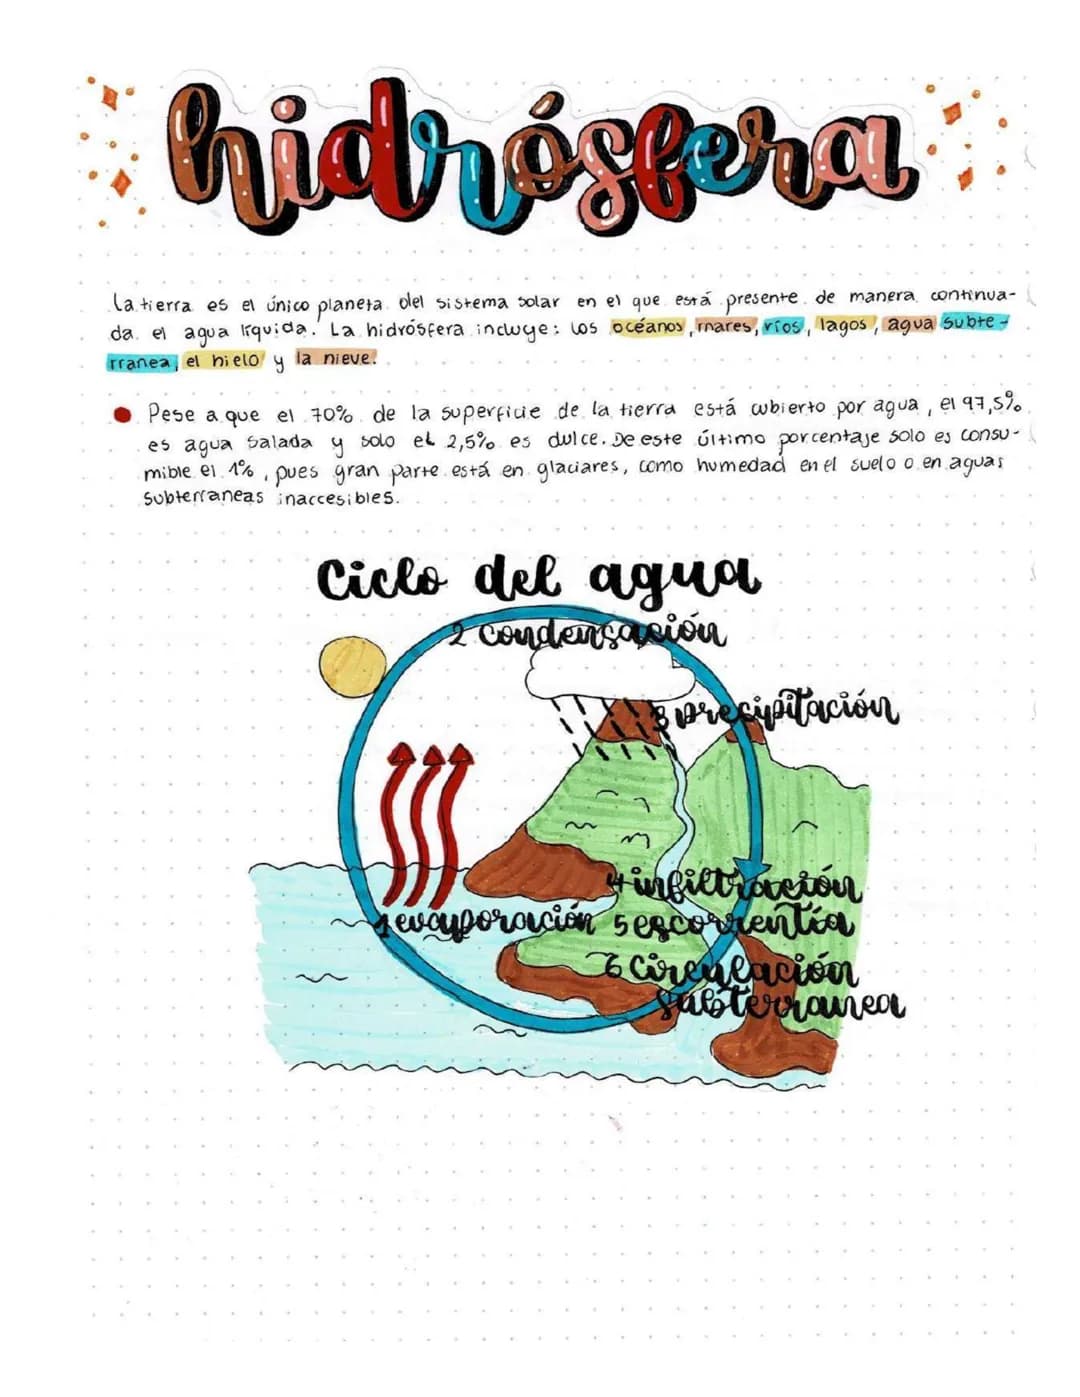 hidrósfera
La tierra es el único planeta del sistema solar en el que está presente de manera continua-
da el agua líquida. La hidrósfera incluye: los océanos, mares, ríos, lagos, agua subte-
rranea, el hielo y la nieve.
Pese a que el 70% de la superficie de la tierra está cubierto por agua, el 97,5%
es agua salada y solo el 2,5% es dulce. De este último porcentaje solo es consu-
mible el 1%, pues gran parte está en glaciares, como humedad en el suelo o en aguas
subterraneas inaccesibles.
Ciclo del agua
2 condensación
3 precipitación
4 infiltración
1 evaporación
5 escorrentía
6 circulación
subterranea